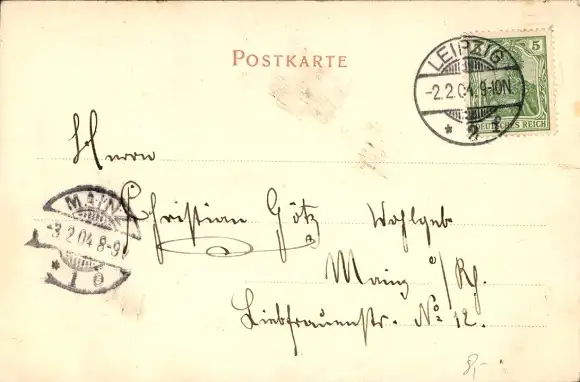 POSTKARTE
LEIPZIG
-2.2.04. 9-10N.
* 2
5
DEUTSCHES REICH
Herrn
Christian Götz Wohlgeb.
Mainz a/Rh.
Liebfrauenstr. No 12.
MAINZ
-3.2.04 8-9
* 1
8,-